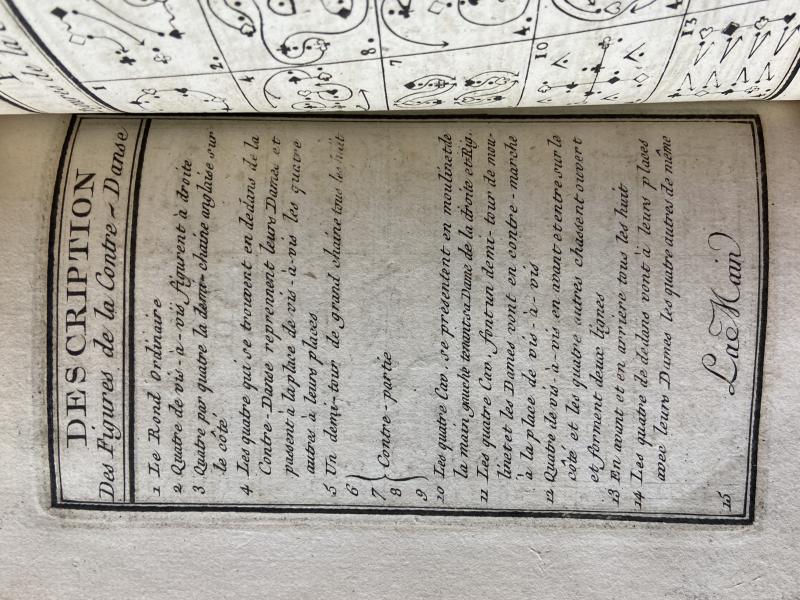 DESCRIPTION
Des Figures de la Contre-Danse
1 Le Rond Ordinaire
2 Quatre de vis-à-vis figurent à droite
3 Quatre par quatre la demi-chaine anglaise sur
le côté
4 Les quatre qui se trouvent en dedans de la
Contre-Danse reprennent leurs Dames et
passent à la place de vis-à-vis les quatre
autres à leurs places
5 Un demi-tour de grand chaine tous les huit
6
7 Contre-partie
8
9
10 Les quatre Cav. se présentent en moulinet de
la main gauche tenant sa Dame de la droite et Rig.
11 Les quatre Cav. font un demi-tour de mou-
linet et les Dames vont en contre-marche
à la place de vis-à-vis
12 Quatre de vis-à-vis en avant et entre sur le
côte et les quatre autres chassent ouvert
et forment deux lignes
13 En avant et en arriere tous les huit
14 Les quatre de dedans vont à leurs places
avec leurs Dames les quatre autres de même
15 La Main
1
2.
4
8.
7
4.
10
13